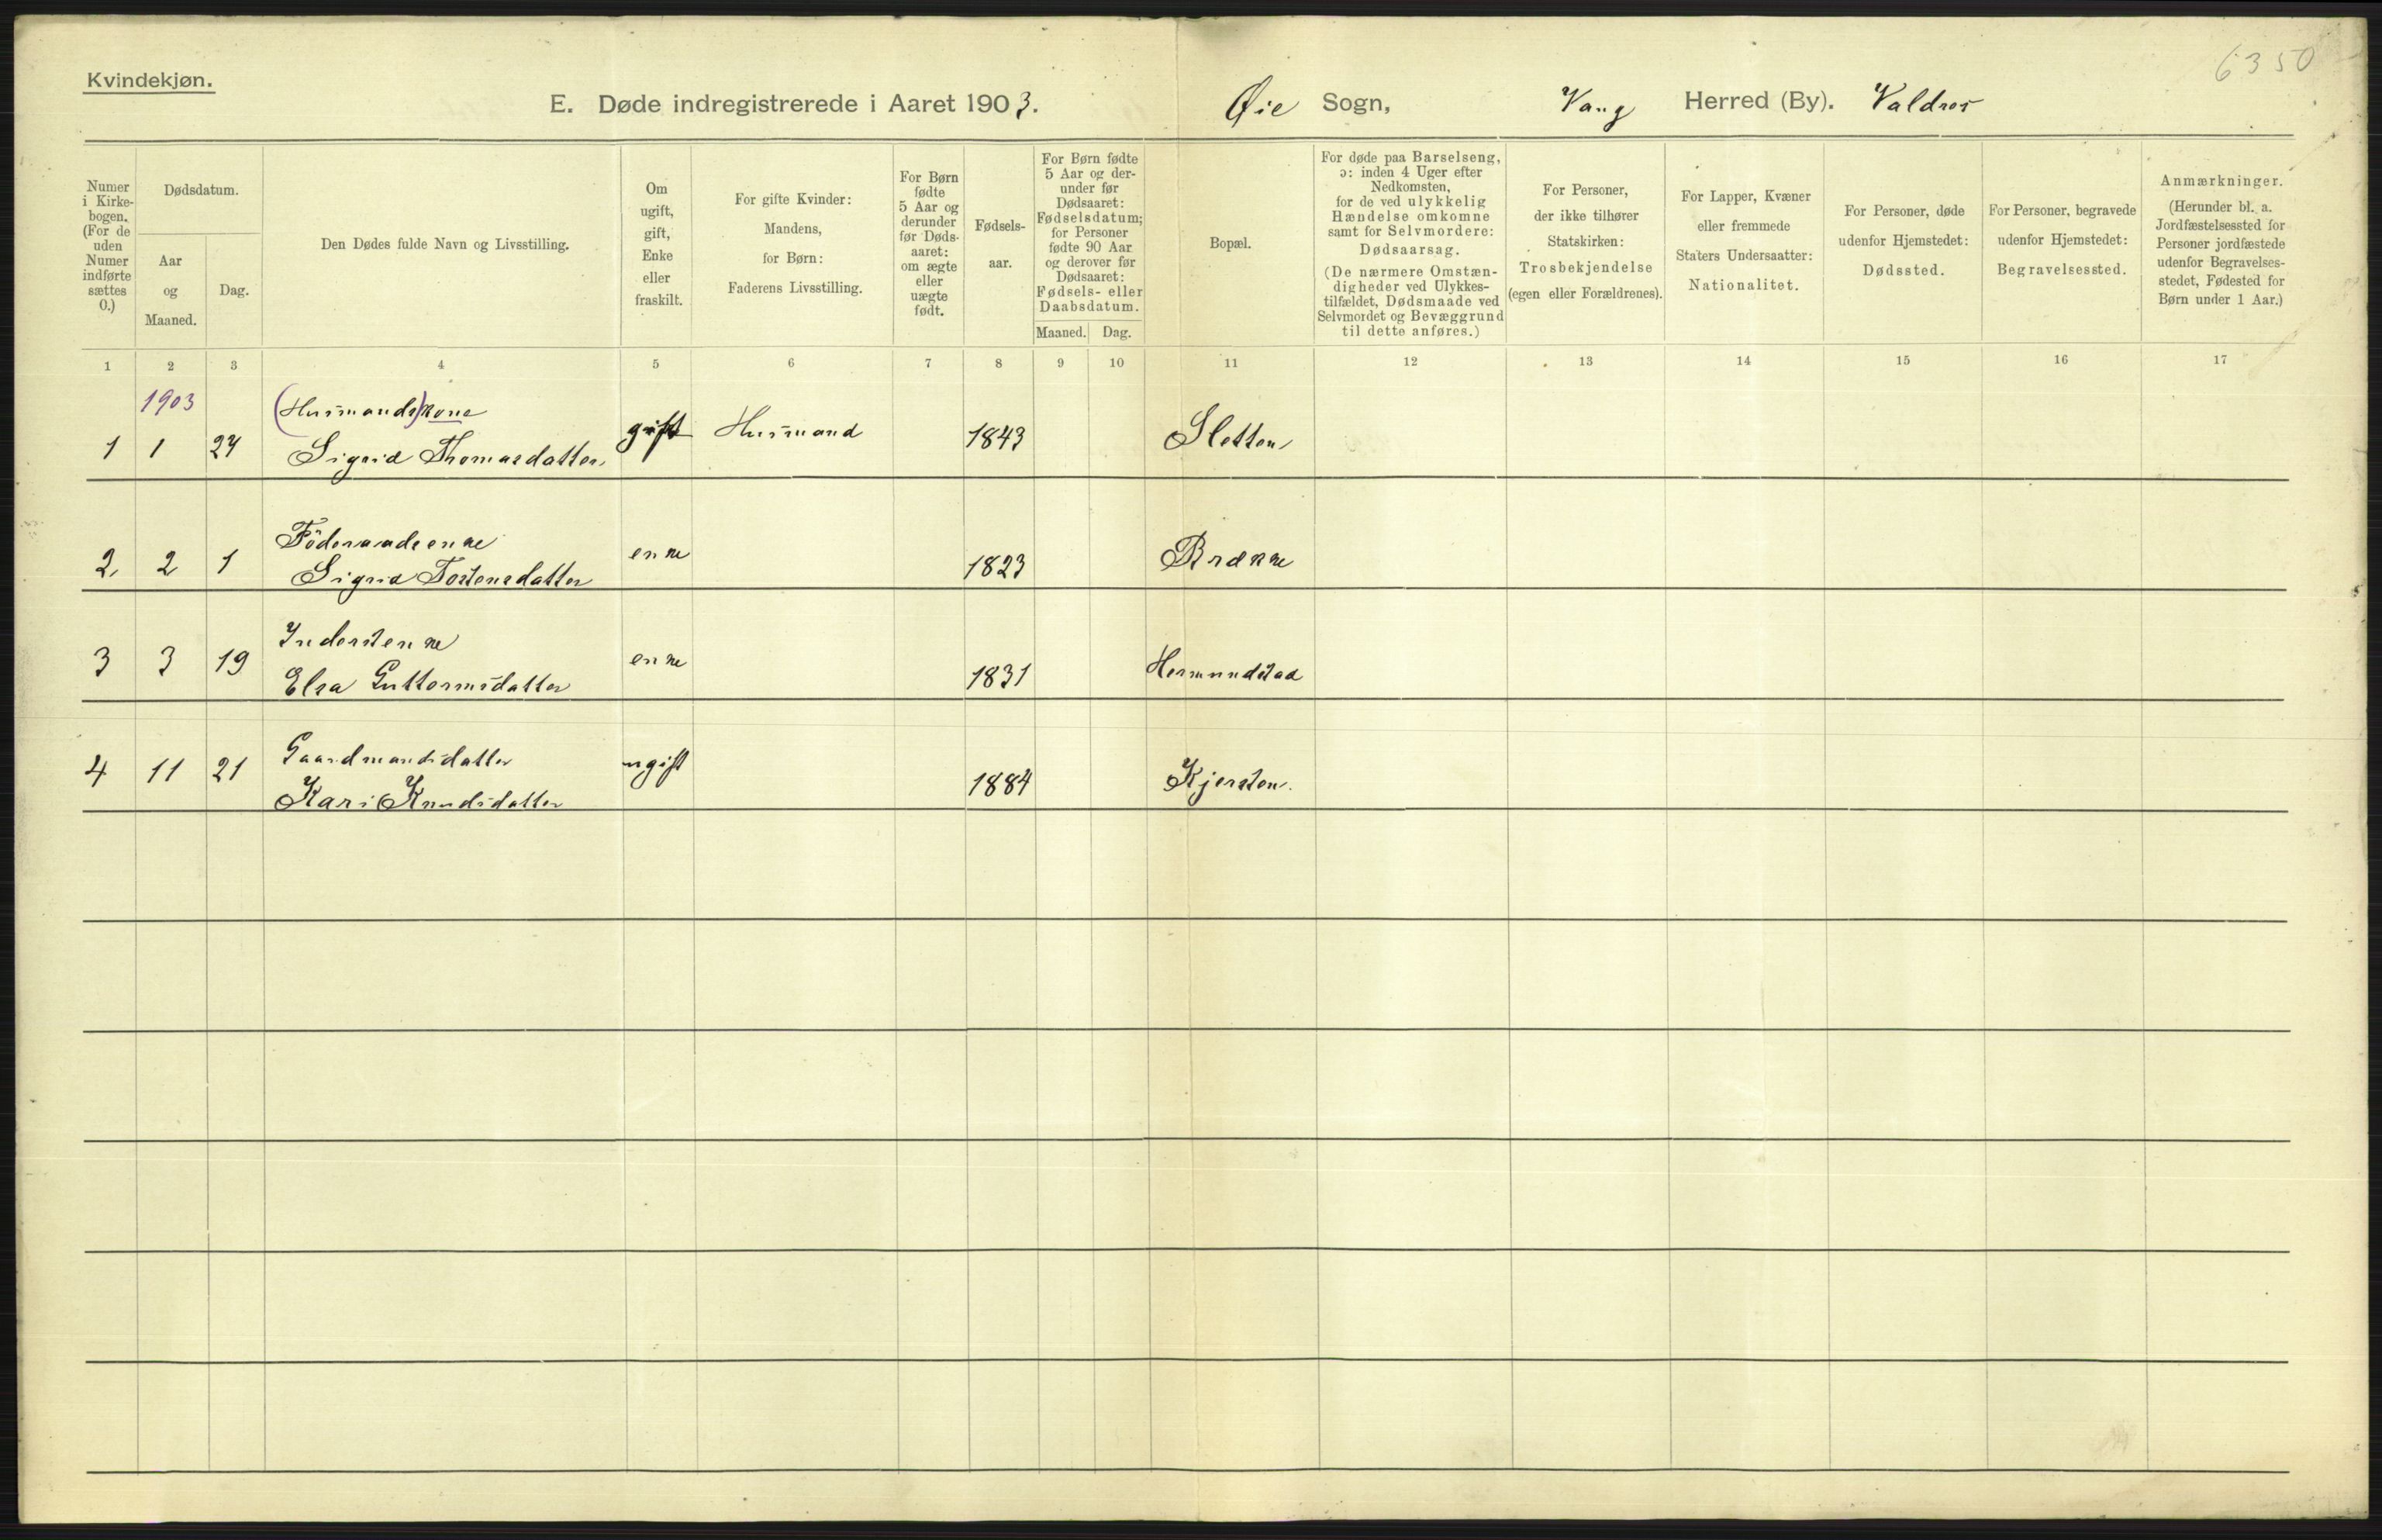 6350
Kvindekjøn.
E. Døde indregistrerede i Aaret 1903. Øie Sogn, Vang Herred (By). Valdres
Numer
i Kirke-
bogen.
(For de
uden
Numer
indførte
sættes
0.)
Dødsdatum.
Aar
og
Maaned.
Dag.
Den Dødes fulde Navn og Livsstilling.
Om
ugift,
gift,
Enke
eller
fraskilt.
For gifte Kvinder:
Mandens,
for Børn:
Faderens Livsstilling.
For Børn
fødte
5 Aar og
derunder
før Døds-
aaret:
om ægte
eller
uægte
født.
Fødsels-
aar.
For Børn fødte
5 Aar og der-
under før
Dødsaaret:
Fødselsdatum;
for Personer
fødte 90 Aar
og derover før
Dødsaaret:
Fødsels- eller
Daabsdatum.
Maaned. Dag.
Bopæl.
For døde paa Barselseng,
ɔ: inden 4 Uger efter
Nedkomsten,
for de ved ulykkelig
Hændelse omkomne
samt for Selvmordere:
Dødsaarsag.
(De nærmere Omstæn-
digheder ved Ulykkes-
tilfældet, Dødsmaade ved
Selvmordet og Bevæggrund
til dette anføres.)
For Personer,
der ikke tilhører
Statskirken:
Trosbekjendelse
(egen eller Forældrenes).
For Lapper, Kvæner
eller fremmede
Staters Undersaatter:
Nationalitet.
For Personer, døde
udenfor Hjemstedet:
Dødssted.
For Personer, begravede
udenfor Hjemstedet:
Begravelsessted.
Anmærkninger.
(Herunder bl. a.
Jordfæstelsessted for
Personer jordfæstede
udenfor Begravelses-
stedet, Fødested for
Børn under 1 Aar.)
1 2 3 4 5 6 7 8 9 10 11 12 13 14 15 16 17
1903 (Husmands)kone
1 1 24 Sigrid Thomasdatter gift Husmand 1843 Sletten
Föderaadsenke
2 2 1 Sigrid Tostensdatter enke 1823 Brække
Inderstenke
3 3 19 Elsa Guttormsdatter enke 1831 Hermundstad
Gaardmandsdatter
4 11 21 Kari Knudsdatter ugift 1884 Kjersten.